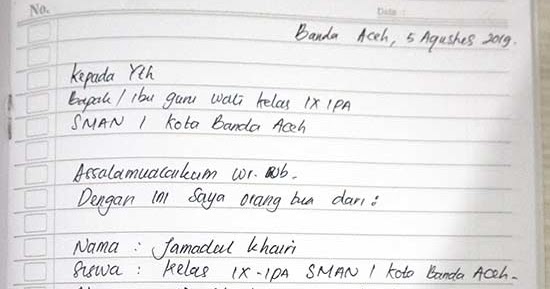 No. Date :
Banda Aceh, 5 Agustus 2019.
Kepada Yth
Bapak / ibu guru wali kelas IX IPA
SMAN 1 Kota Banda Aceh
Assalamualaikum wr. wb.
Dengan ini saya orang tua dari :
Nama : Jamadul Khairi
Siswa : Kelas IX-IPA SMAN 1 Kota Banda Aceh.